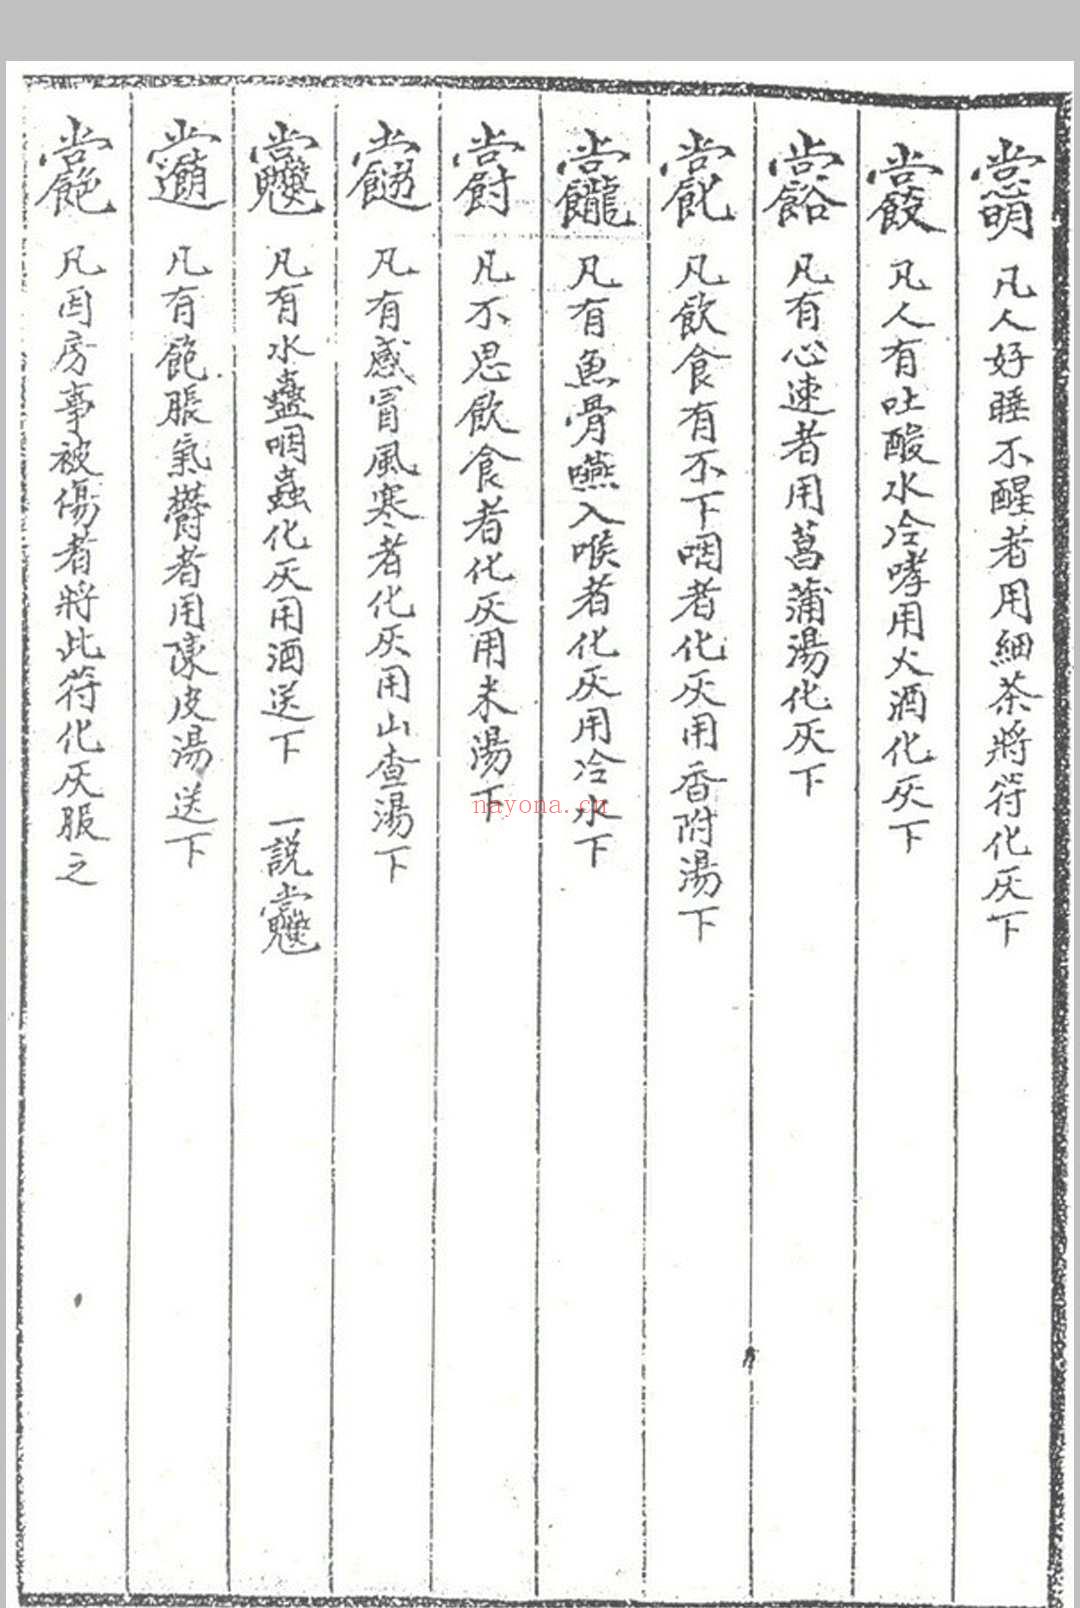 凡人好睡不醒者用細茶將符化灰下
凡人有吐酸水冷哮用火酒化灰下
凡有心速者用菖蒲湯化灰下
凡飲食有不下咽者化灰用香附湯下
凡有魚骨嚥入喉者化灰用冷水下
凡不思飲食者化灰用米湯下
凡有感冒風寒者化灰用山查湯下
凡有水蠱咽蟲化灰用酒送下 一説
凡有飽脹氣欝者用陳皮湯送下
凡因房事被傷者將此符化灰服之
nayona.cn